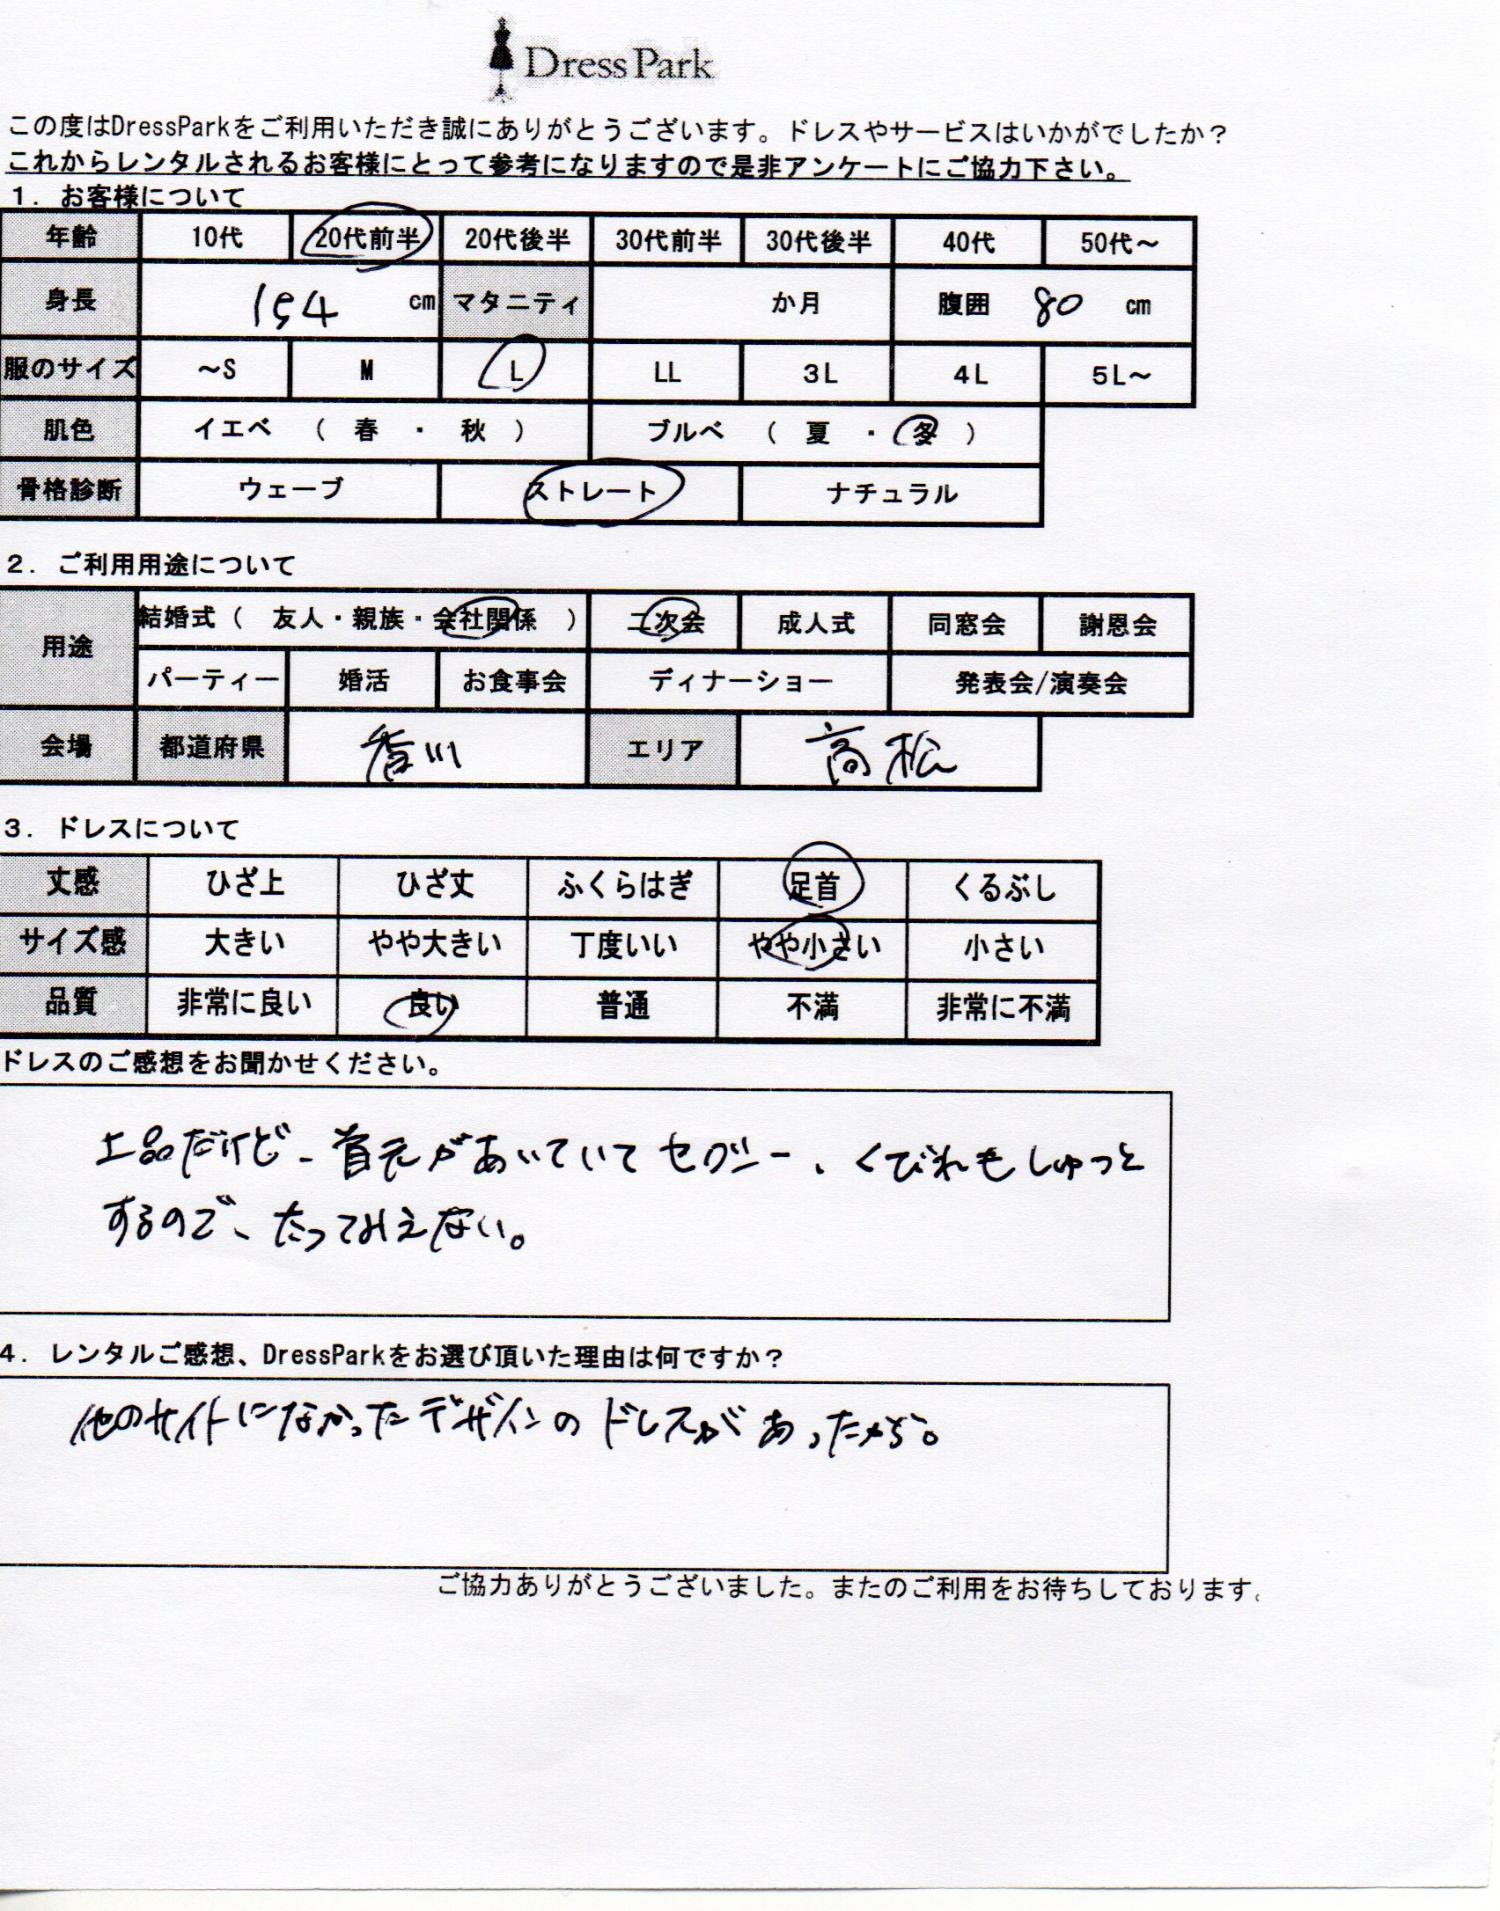 DressPark
この度はDressParkをご利用いただき誠にありがとうございます。ドレスやサービスはいかがでしたか？
これからレンタルされるお客様にとって参考になりますので是非アンケートにご協力下さい。
１．お客様について
年齢 10代 20代前半 20代後半 30代前半 30代後半 40代 50代～
身長 154 cm マタニティ か月 腹囲 80 cm
服のサイズ ～S M L LL 3L 4L 5L～
肌色 イエベ （ 春 ・ 秋 ） ブルベ （ 夏 ・ 冬 ）
骨格診断 ウェーブ ストレート ナチュラル
２．ご利用用途について
用途 結婚式（ 友人・親族・会社関係 ） 二次会 成人式 同窓会 謝恩会
パーティー 婚活 お食事会 ディナーショー 発表会/演奏会
会場 都道府県 香川 エリア 高松
３．ドレスについて
丈感 ひざ上 ひざ丈 ふくらはぎ 足首 くるぶし
サイズ感 大きい やや大きい 丁度いい やや小さい 小さい
品質 非常に良い 良い 普通 不満 非常に不満
ドレスのご感想をお聞かせください。
上品だけど、首元があいていてセクシー、くびれもしゅっと
するので、たってみえない。
４．レンタルご感想、DressParkをお選び頂いた理由は何ですか？
他のサイトになかったデザインのドレスがあったから。
ご協力ありがとうございました。またのご利用をお待ちしております。